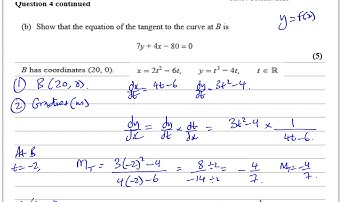 Question 4 continued
y=f(x)
(b) Show that the equation of the tangent to the curve at B is
7y + 4x – 80 = 0
(5)
B has coordinates (20, 0). x = 2t² – 6t, y = t³ – 4t, t ∈ ℝ
① B(20,0). dx/dt = 4t-6 dy/dt = 3t²-4.
② Gradient (m)
dy/dx = dy/dt × dt/dx = 3t²-4 × 1/4t-6.
At B
t=-2, M_T = 3(-2)²-4/4(-2)-6 = 8÷2/-14÷2 = -4/7. M_T=-4/7